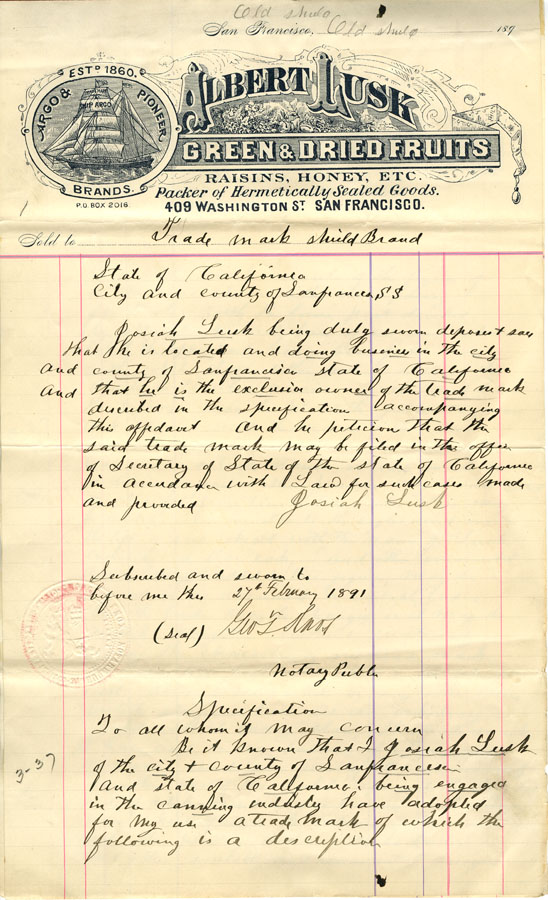 Old shulo
San Francisco, Old shulo 187
ESTD 1860.
ARGO & PIONEER
SHIP ARGO
BRANDS.
P.O. BOX 2016.
ALBERT LUSK
GREEN & DRIED FRUITS
RAISINS, HONEY, ETC.
Packer of Hermetically Sealed Goods.
409 WASHINGTON ST. SAN FRANCISCO.
Sold to Trade mark shield Brand
State of California
City and county of Sanfrancisco SS
Josiah Lusk being duly sworn deposes & says
that he is located and doing business in the city
and county of Sanfrancisco state of California
And that he is the exclusive owner of the trade mark
described in the specification accompanying
this affidavit and he petition that the
said trade mark may be filed in the office
of Secretary of State of the state of California
in accordance with Law for such cases made
and provided Josiah Lusk
Subscribed and sworn to
before me this 27th February 1891
(seal) Geo T Knox
Notary Public
Specification
To all whom it may concern
Be it known that I Josiah Lusk
of the city & county of Sanfrancisco
and state of California being engaged
in the canning industry have adopted
for my use a trade mark of which the
following is a description
3-37